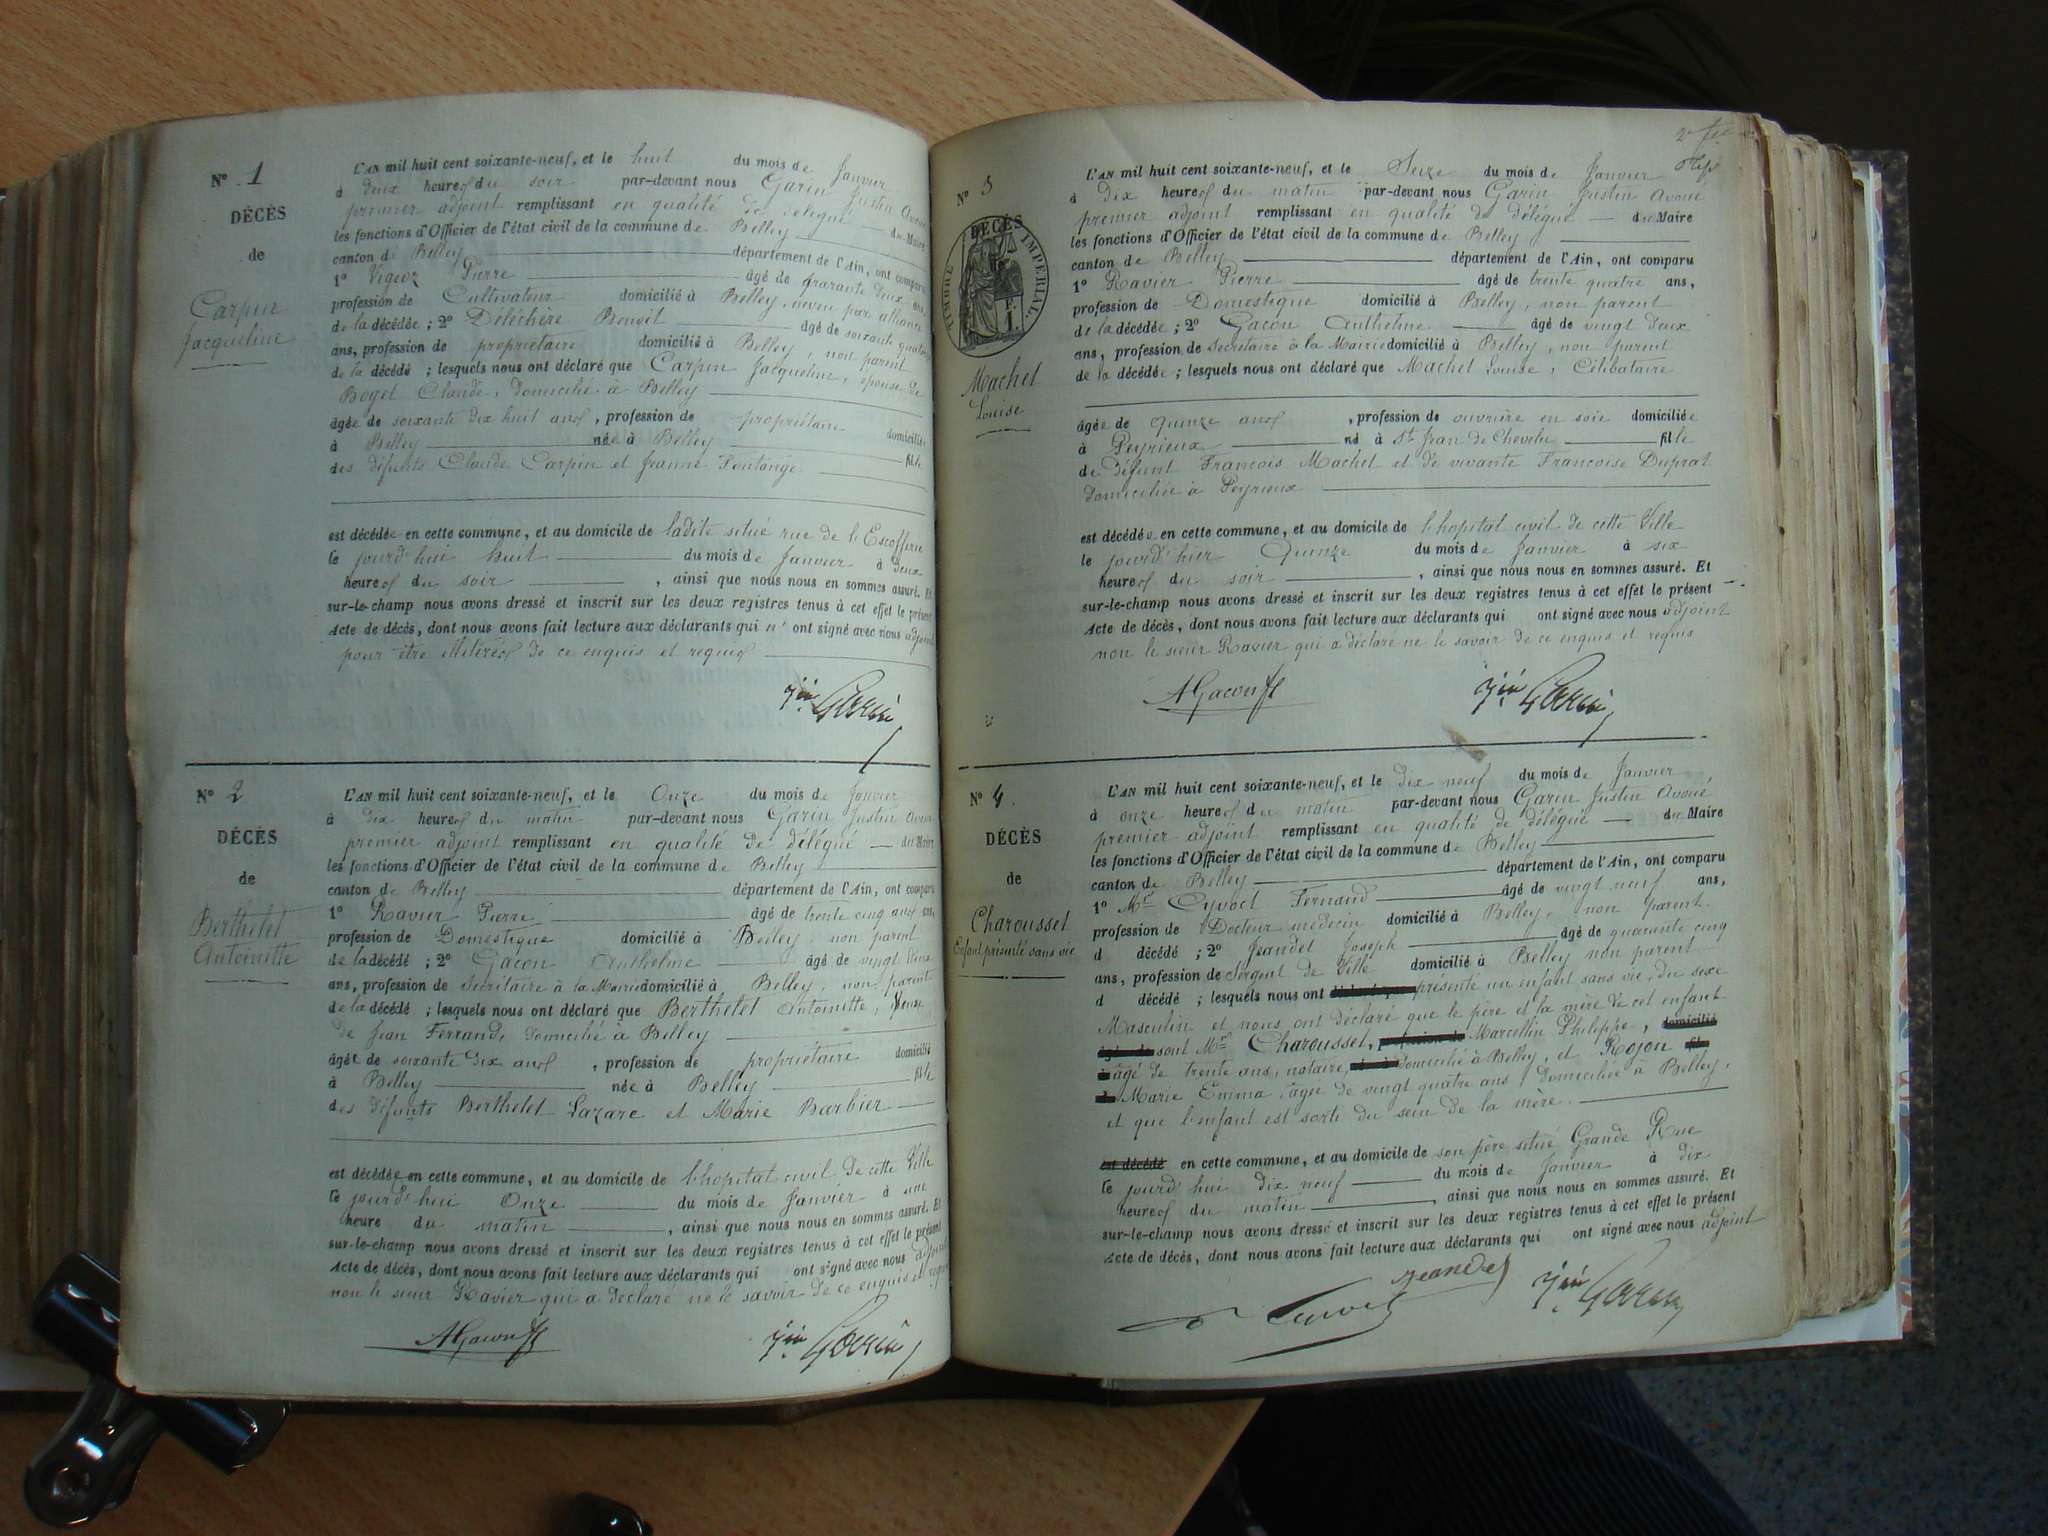 N° 1
DÉCÈS
de
Carpin
Jacqueline
L'AN mil huit cent soixante-neuf, et le huit du mois de Janvier
à deux heures du soir par-devant nous Garin Justin Avoué
premier adjoint remplissant en qualité de délégué — du Maire
les fonctions d'Officier de l'état civil de la commune de Belley
canton de Belley département de l'Ain, ont comparu
1° Pierre âgé de quarante deux ans,
profession de Cultivateur domicilié à Belley, neveu par alliance
de la décédée ; 2° Déléchère Benoit âgé de soixante quatre
ans, profession de propriétaire domicilié à Belley, non parent
de la décédé ; lesquels nous ont déclaré que Carpin Jacqueline, épouse de
Boget Claude, domicilié à Belley
âgée de soixante dix huit ans, profession de propriétaire domiciliée
à Belley née à Belley fille
des défunts Claude Carpin et Jeanne Fontange
est décédée en cette commune, et au domicile de ladite situé rue de l'Escofferie
le jourd'hui huit du mois de Janvier à deux
heures du soir , ainsi que nous nous en sommes assuré. Et
sur-le-champ nous avons dressé et inscrit sur les deux registres tenus à cet effet le présent
Acte de décès, dont nous avons fait lecture aux déclarants qui n'ont signé avec nous adjoint
pour être illitérés de ce enquis et requis
Jin Garin
N° 2
DÉCÈS
de
Berthelet
Antoinette
L'AN mil huit cent soixante-neuf, et le Onze du mois de Janvier
à dix heures du matin par-devant nous Garin Justin Avoué
premier adjoint remplissant en qualité de délégué — du Maire
les fonctions d'Officier de l'état civil de la commune de Belley
canton de Belley département de l'Ain, ont comparu
1° Ravier Pierre âgé de trente cinq ans ans,
profession de Domestique domicilié à Belley, non parent
de la décédé ; 2° Gacon Anthelme âgé de vingt deux
ans, profession de Secrétaire à la Mairie domicilié à Belley, non parent
de la décédé ; lesquels nous ont déclaré que Berthelet Antoinette, Veuve
de Jean Ferrand, domiciliée à Belley
âgée de soixante dix ans , profession de propriétaire domicilié
à Belley née à Belley fille
des défunts Berthelet Lazare et Marie Barbier
est décédée en cette commune, et au domicile de l'hopital civil de cette Ville
le jourd'hui Onze du mois de Janvier à une
heure du matin , ainsi que nous nous en sommes assuré. Et
sur-le-champ nous avons dressé et inscrit sur les deux registres tenus à cet effet le présent
Acte de décès, dont nous avons fait lecture aux déclarants qui ont signé avec nous adjoint
non le sieur Ravier qui a déclaré ne le savoir de ce enquis et requis
AGacon Jin Garin
N° 3
DÉCÈS
TIMBRE IMPÉRIAL
Machet
Louise
L'AN mil huit cent soixante-neuf, et le Seize du mois de Janvier
à Dix heures du matin par-devant nous Garin Justin Avoué
premier adjoint remplissant en qualité de délégué — du Maire
les fonctions d'Officier de l'état civil de la commune de Belley
canton de Belley département de l'Ain, ont comparu
1° Ravier Pierre âgé de trente quatre ans,
profession de Domestique domicilié à Belley, non parent
de la décédée ; 2° Gacon Anthelme âgé de vingt deux
ans, profession de Secrétaire à la Mairie domicilié à Belley, non parent
de la décédée ; lesquels nous ont déclaré que Machet Louise, Célibataire
âgée de quinze ans , profession de ouvrière en soie domiciliée
à Peyrieux né à St Jean de Chevelu fille
de défunt François Machet et de vivante Françoise Duprat
domiciliée à Peyrieux
est décédée en cette commune, et au domicile de l'hopital civil de cette Ville
le jourd'hier Quinze du mois de Janvier à six
heures du soir , ainsi que nous nous en sommes assuré. Et
sur-le-champ nous avons dressé et inscrit sur les deux registres tenus à cet effet le présent
Acte de décès, dont nous avons fait lecture aux déclarants qui ont signé avec nous adjoint
non le sieur Ravier qui a déclaré ne le savoir de ce enquis et requis
AGacon Jin Garin
N° 4
DÉCÈS
de
Charousset
Enfant présenté sans vie
L'AN mil huit cent soixante-neuf, et le dix neuf du mois de Janvier
à onze heures du matin par-devant nous Garin Justin Avoué,
premier adjoint remplissant en qualité de délégué — du Maire
les fonctions d'Officier de l'état civil de la commune de Belley
canton de Belley département de l'Ain, ont comparu
1° Mr Cyvoct Fernand âgé de vingt neuf ans,
profession de Docteur médecin domicilié à Belley, non parent.
d décédé ; 2° Jeandet Joseph âgé de quarante cinq
ans, profession de Sergent de Ville domicilié à Belley non parent
d décédé ; lesquels nous ont présenté un enfant sans vie, du sexe
Masculin et nous ont déclaré que le père et la mère de cet enfant
sont Mr Charousset, Marcellin Philippe, domicilié
âgé de trente ans, notaire, domicilié à Belley, et Rojon
Marie Emma, âgée de vingt quatre ans, domiciliée à Belley,
et que l'enfant est sorti du sein de la mère.
est décédé en cette commune, et au domicile de son père situé Grande Rue
le jourd'hui dix neuf du mois de Janvier à dix
heures du matin , ainsi que nous nous en sommes assuré. Et
sur-le-champ nous avons dressé et inscrit sur les deux registres tenus à cet effet le présent
Acte de décès, dont nous avons fait lecture aux déclarants qui ont signé avec nous adjoint
Jeandet Jin Garin